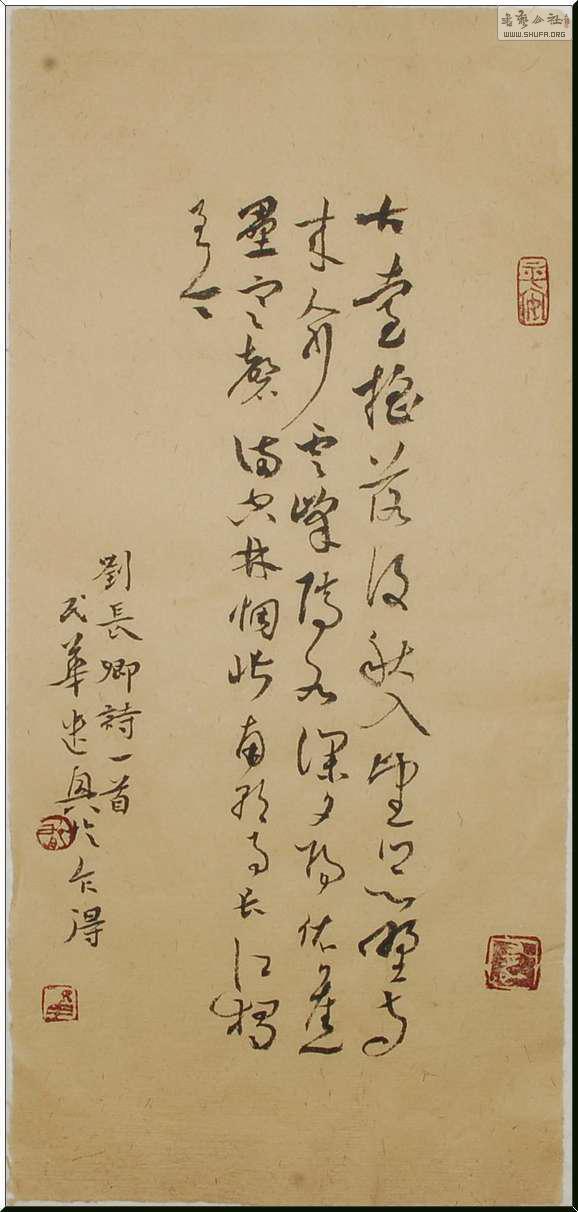 古臺摇落後秋入望鄉心野寺
来人少雲峰隔水深夕陽依舊
壘寒磬滿空林惆悵南朝事長江獨
至今
劉長卿詩一首
民華遣興於
书艺公社
WWW.SHUFA.ORG